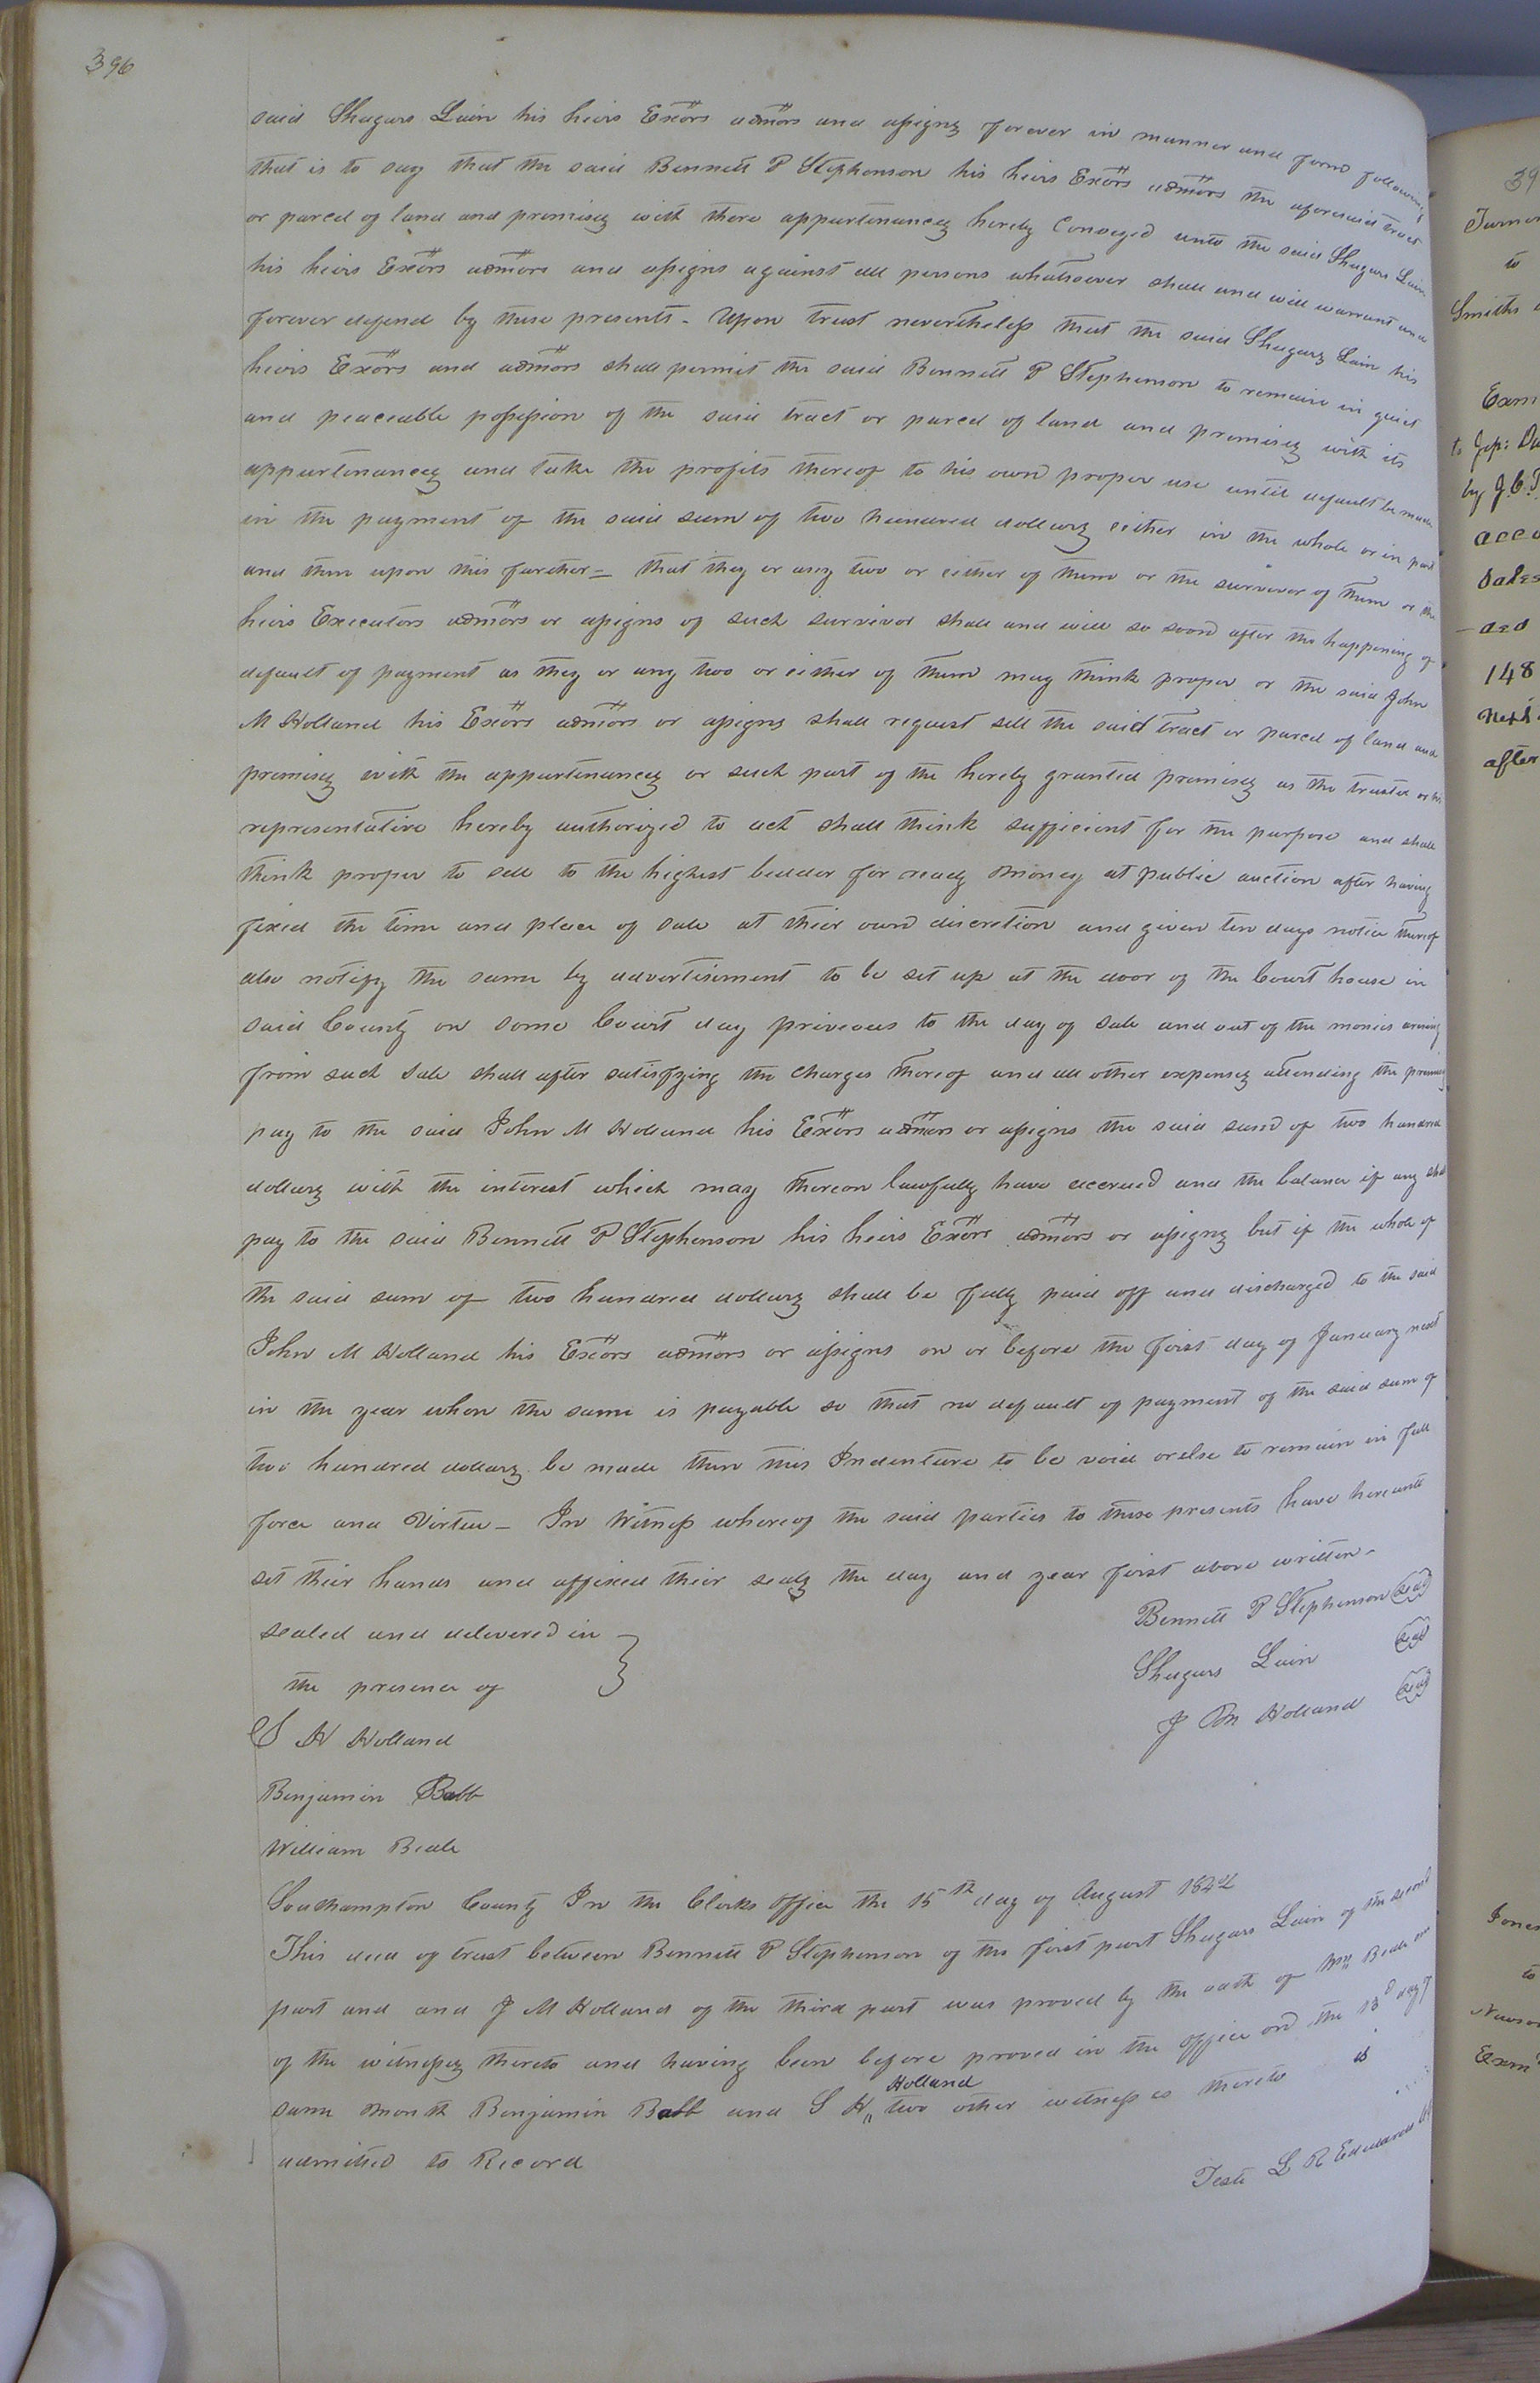 396
said Shugars Lain his heirs Exõrs admõrs and assigns forever in manner and form following
that is to say that the said Bennett P Stephenson his heirs Exõrs admõrs the aforesaid tract
or parcel of land and premises with there appurtenances hereby Conveyed unto the said Shugars Lain
his heirs Exõrs admõrs and assigns against all persons whatsoever shall and will warrant and
forever defend by these presents - Upon trust nevertheless that the said Shugars Lain his
heirs Exõrs and admõrs shall permit the said Bennett P Stephenson to remain in quiet
and peaceable possession of the said tract or parcel of land and premises with its
appurtenances and take the profits thereof to his own proper use until default be made
in the payment of the said sum of two hundred dollars either in the whole or in part
and then upon this further - that they or any two or either of them or the survivor of them or the
heirs Executors admõrs or assigns of such survivor shall and will so soon after the happening of
default of payment as they or any two or either of them may think proper or the said John
M Holland his Exõrs admõrs or assigns shall request sell the said tract or parcel of land and
premises with the appurtenances or such part of the hereby granted premises as the trustee or his
representative hereby authorized to act shall think sufficient for the purpose and shall
think proper to sell to the highest bidder for ready money at public auction after having
fixed the time and place of sale at their own discretion and given ten days notice thereof
also notify the same by advertisement to be set up at the door of the Court house in
said County on some Court day priveous to the day of sale and out of the monies arising
from such sale shall after satisfying the Charges thereof and all other expenses attending the premises
pay to the said John M Holland his Exõrs admõrs or assigns the said sum of two hundred
dollars with the interest which may thereon lawfully have accrued and the balance if any shall
pay to the said Bennett P Stephenson his heirs Exõrs admõrs or assigns but if the whole of
the said sum of two hundred dollars shall be fully paid off and discharged to the said
John M Holland his Exõrs admõrs or assigns on or before the first day of January next
in the year when the same is payable so that no default of payment of the said sum of
two hundred dollars be made then this Indenture to be void or else to remain in full
force and Virtue - In Witness whereof the said parties to these presents have hereunto
set their hands and affixed their seals the day and year first above written -
sealed and delivered in
the presence of
Bennett P Stephenson seal
Shugars Lain seal
J M Holland seal
S H Holland
Benjamin Babb
William Beale
Southampton County In the Clerks office the 15th day of August 1842
This deed of trust between Bennett P Stephenson of the first part Shugars Lain of the second
part and and J M Holland of the third part was proved by the oath of Wm Beale one
of the witnesses thereto and having been before proved in the office on the 13d day of
same month Benjamin Babb and S H Holland two other witnesses thereto is
admitted to Record
Teste L R Edwards
39
to
Smiths
by J. C.
148
after
to